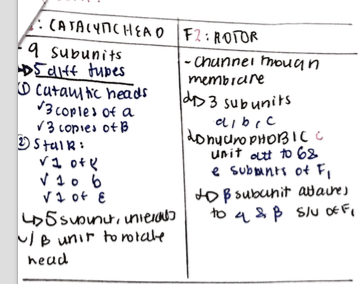 : CATALYTIC HEAD
- 9 subunits
→ 5 diff types
① Catalytic heads
✓ 3 copies of a
✓ 3 copies of B
② Stalk:
✓ 1 of γ
✓ 1 o b
✓ 1 of ε
↳ 5 subunit,
w/ B unit to rotate
head
F2: ROTOR
- Channel though
membrane
↳ 3 subunits
a, b, c
↳ hydrophobic c
unit att to 6 &
e subunits of F1
↳ β subunit attaches
to a & β s/u of F1